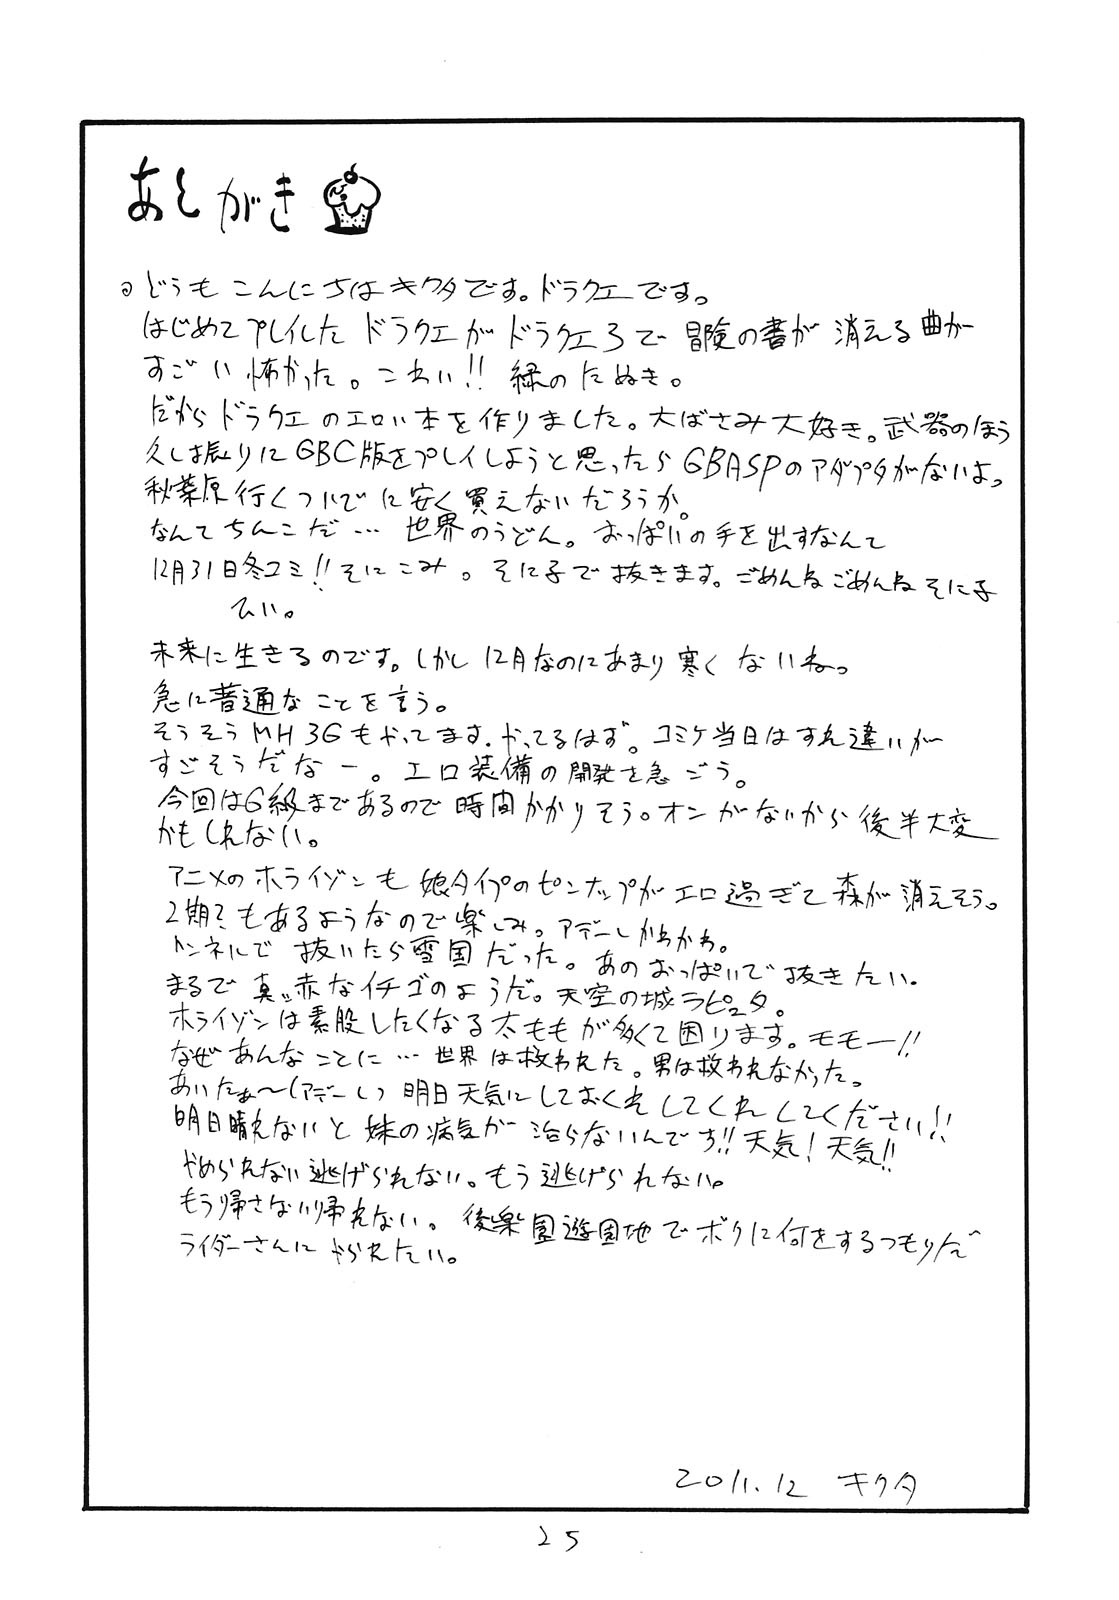 あとがき
どうもこんにちはキクタです。ドラクエです。
はじめてプレイしたドラクエがドラクエ3で冒険の書が消える曲が
すごい怖かった。こわい!!緑のたぬき。
だからドラクエのエロい本を作りました。大ばさみ大好き。武器のほう
久し振りにGBC版をプレイしようと思ったらGBASPのアダプタがないよ。
秋葉原行くついでに安く買えないだろうか。
なんてちんこだ…世界のうどん。おっぱいの手を出すなんて
12月31日冬コミ!!そにこみ。そに子で抜きます。ごめんねごめんねそに子
ひい。
未来に生きるのです。しかし12月なのにあまり寒くないね。
急に普通なことを言う。
そうそうMH3Gもやってます。やってるはず。コミケ当日はすれ違いが
すごそうだなー。エロ装備の開発を急ごう。
今回はG級まであるので時間かかりそう。オンがないから後半大変
かもしれない。
アニメのホライゾンも娘タイプのピンナップがエロ過ぎて森が消えそう。
2期?もあるようなので楽しみ。アデーレかわかわ。
トンネルで抜いたら雪国だった。あのおっぱいで抜きたい。
まるで真っ赤なイチゴのようだ。天空の城ラピュタ。
ホライゾンは素股したくなる太ももが多くて困ります。モモー!!
なぜあんなことに…世界は救われた。男は救われなかった。
あいたぁ～(アデーレ)明日天気にしておくれしてくれしてください!!
明日晴れないと妹の病気が治らないんです!!天気!天気!!
やめられない逃げられない。もう逃げられない。
もう帰さない帰れない。後楽園遊園地でボクに何をするつもりだ
ライダーさんにやられたい。
2011.12 キクタ
25